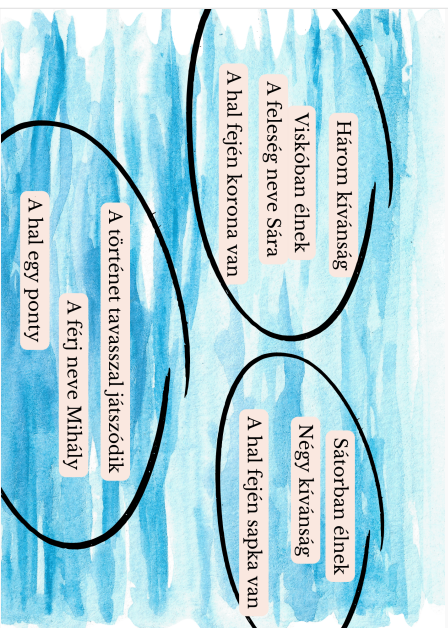 Három kívánság
Viskóban élnek
A feleség neve Sára
A hal fején korona van
Sátorban élnek
Négy kívánság
A hal fején sapka van
A történet tavasszal játszódik
A férj neve Mihály
A hal egy ponty